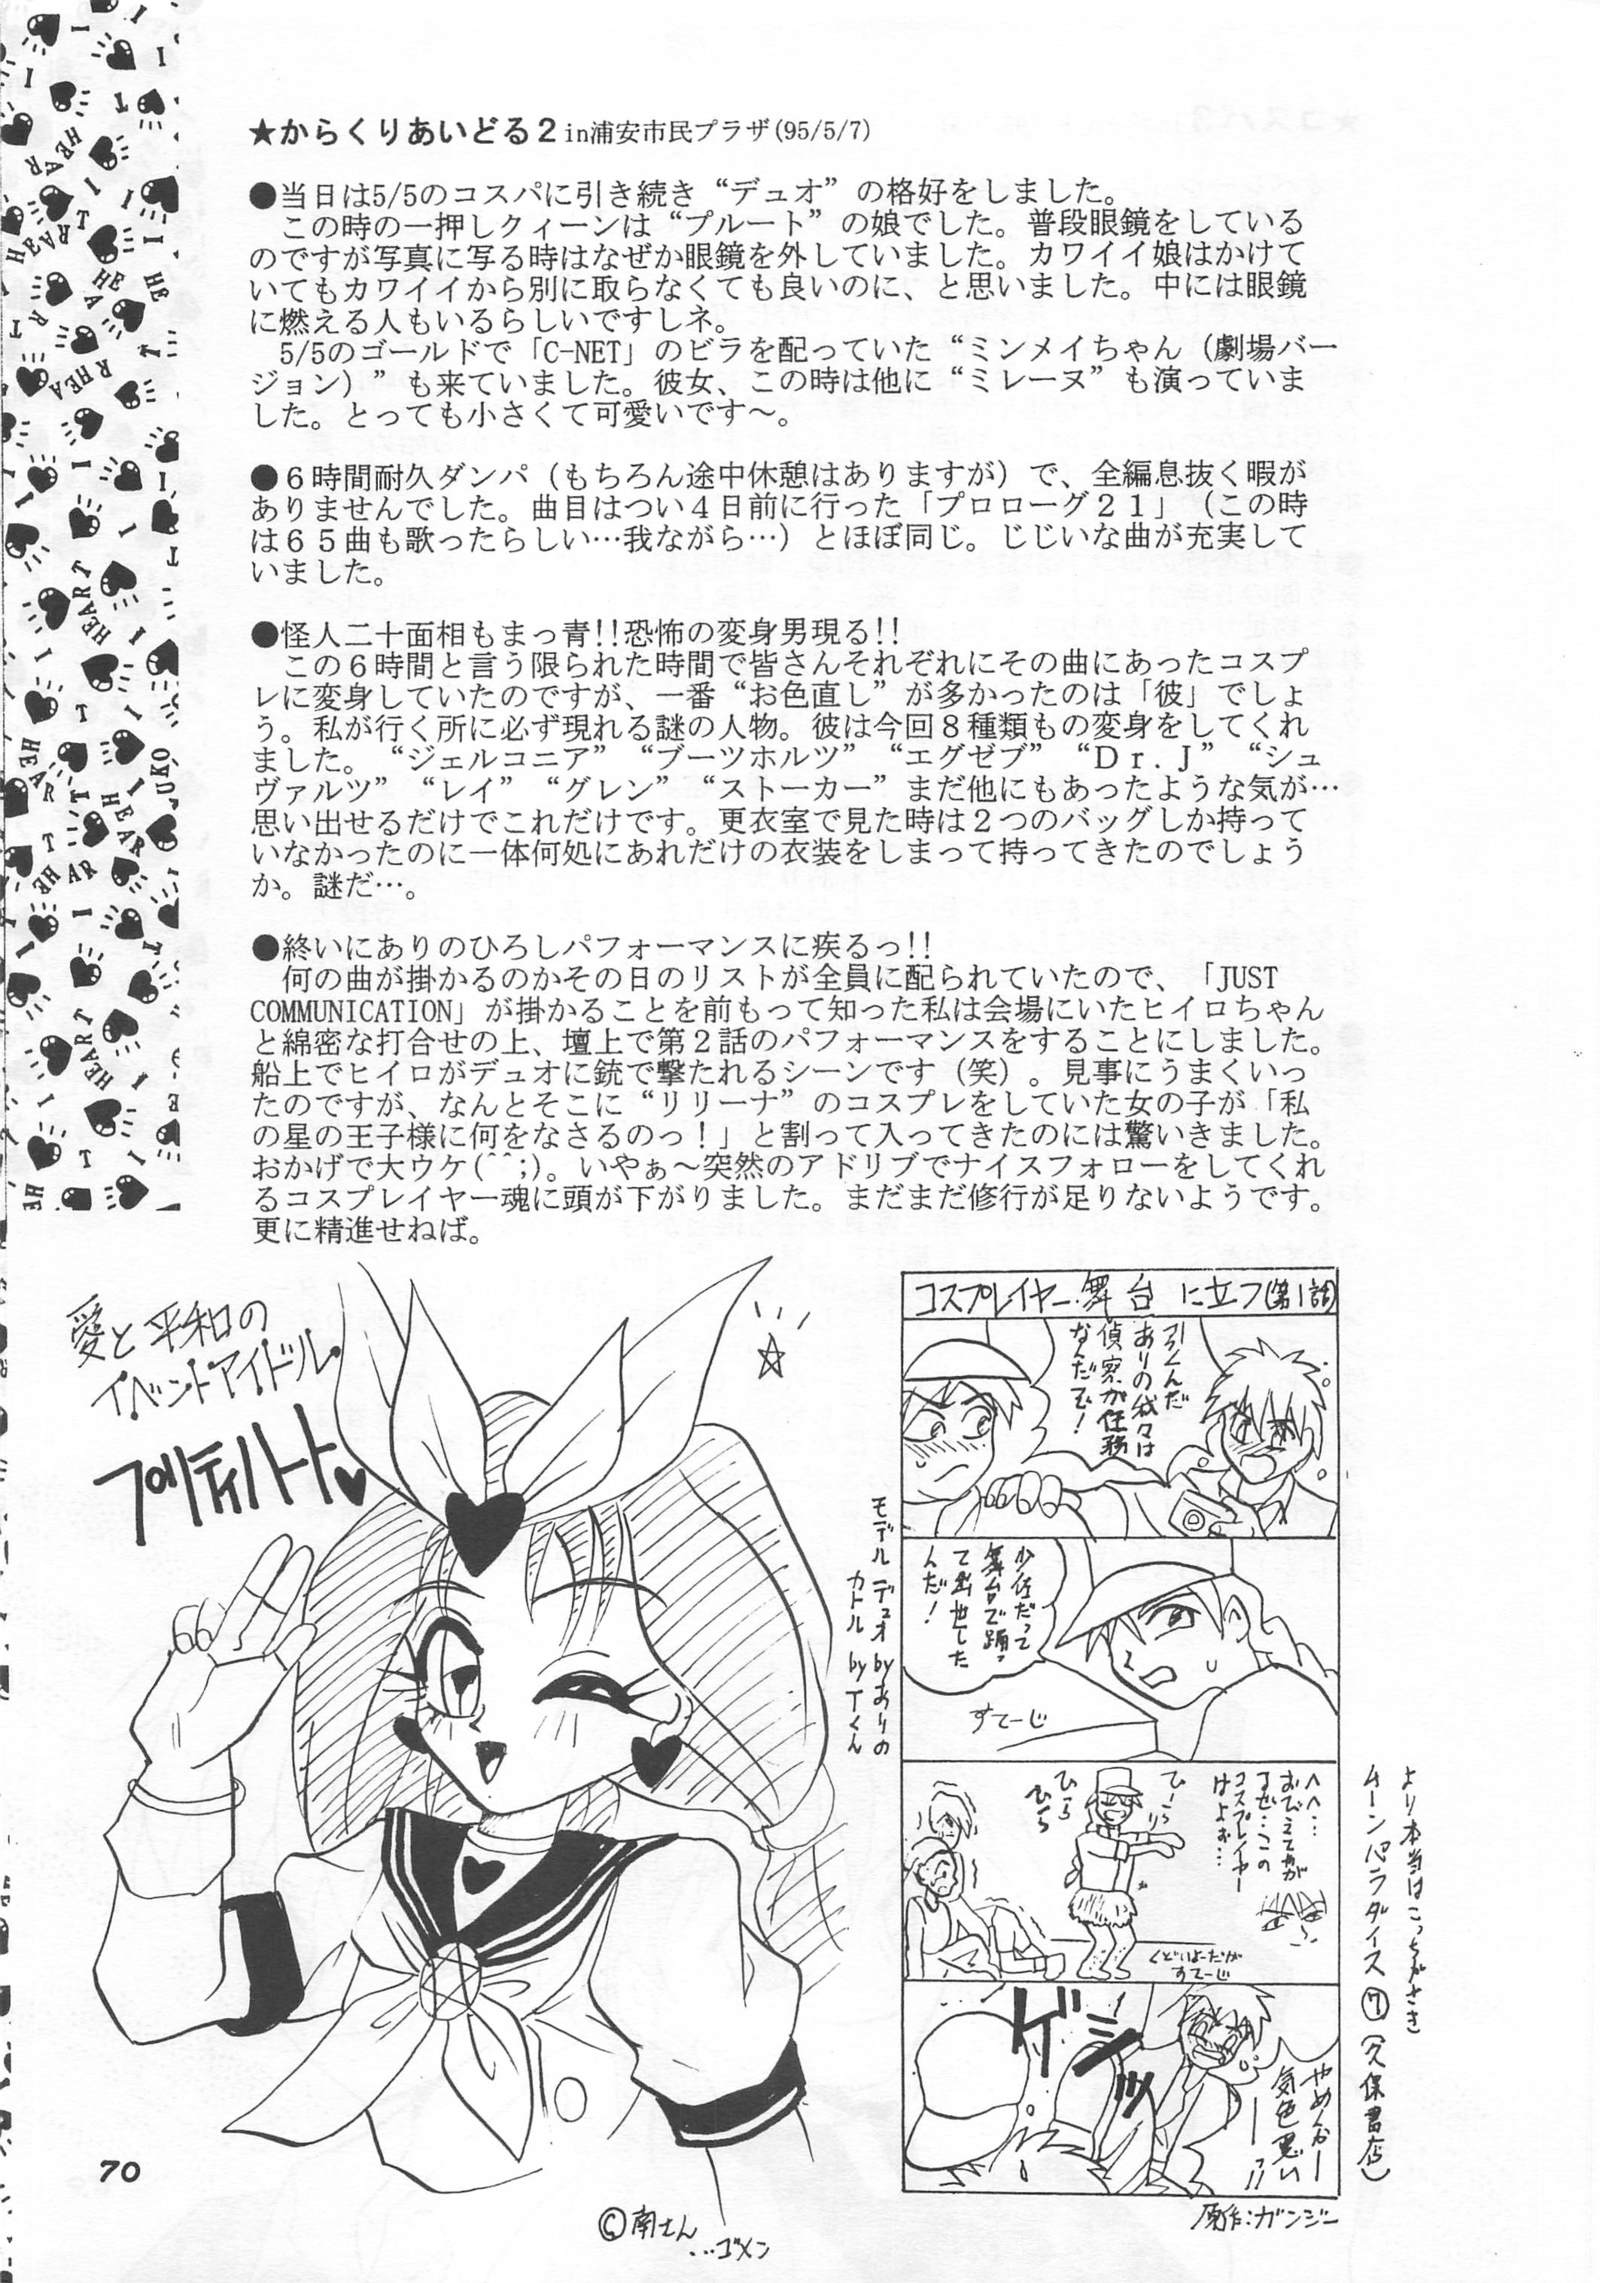 ★からくりあいどる２in浦安市民プラザ(95/5/7)
●当日は5/5のコスパに引き続き“デュオ”の格好をしました。
この時の一押しクィーンは“プルート”の娘でした。普段眼鏡をしている
のですが写真に写る時はなぜか眼鏡を外していました。カワイイ娘はかけて
いてもカワイイから別に取らなくても良いのに、と思いました。中には眼鏡
に燃える人もいるらしいですしネ。
5/5のゴールドで「C-NET」のビラを配っていた“ミンメイちゃん（劇場バー
ジョン）”も来ていました。彼女、この時は他に“ミレーヌ”も演っていま
した。とっても小さくて可愛いです～。
●６時間耐久ダンパ（もちろん途中休憩はありますが）で、全編息抜く暇が
ありませんでした。曲目はつい４日前に行った「プロローグ２１」（この時
は６５曲も歌ったらしい…我ながら…）とほぼ同じ。じじいな曲が充実して
いました。
●怪人二十面相もまっ青!!恐怖の変身男現る!!
この６時間と言う限られた時間で皆さんそれぞれにその曲にあったコスプ
レに変身していたのですが、一番“お色直し”が多かったのは「彼」でしょ
う。私が行く所に必ず現れる謎の人物。彼は今回８種類もの変身をしてくれ
ました。“ジェルコニア”“ブーツホルツ”“エグゼブ”“Ｄｒ.Ｊ”“シュ
ヴァルツ”“レイ”“グレン”“ストーカー”まだ他にもあったような気が…
思い出せるだけでこれだけです。更衣室で見た時は２つのバッグしか持って
いなかったのに一体何処にあれだけの衣装をしまって持ってきたのでしょう
か。謎だ…。
●終いにありのひろしパフォーマンスに疾るっ!!
何の曲が掛かるのかその日のリストが全員に配られていたので、「JUST
COMMUNICATION」が掛かることを前もって知った私は会場にいたヒイロちゃん
と綿密な打合せの上、壇上で第２話のパフォーマンスをすることにしました。
船上でヒイロがデュオに銃で撃たれるシーンです（笑）。見事にうまくいっ
たのですが、なんとそこに“リリーナ”のコスプレをしていた女の子が「私
の星の王子様に何をなさるのっ！」と割って入ってきたのには驚いきました。
おかげで大ウケ(^^;)。いやぁ～突然のアドリブでナイスフォローをしてくれ
るコスプレイヤー魂に頭が下がりました。まだまだ修行が足りないようです。
更に精進せねば。
愛と平和の
イベントアイドル
プリティハート♥
コスプレイヤー舞台に立つ(第1話)
引くんだ
ありの我々は
偵察が任務
なんだぞ！
少佐だって
舞台で踊っ
て出世した
んだ！
すてーじ
へへ…
おびえてやが
るぜ…この
コスプレイヤー
けよぉ…
ひーらり
ひらひら
すてーじ
ゲシッ
やめんかー
気色悪い
ーっ!!
モデル デュオ byありの
カトル by Tくん
より本当はこっちがさき
ムーンパラダイス⑦（久保書店）
原作:ガンジー
©南さん
…ゴメン
70
I
HEART